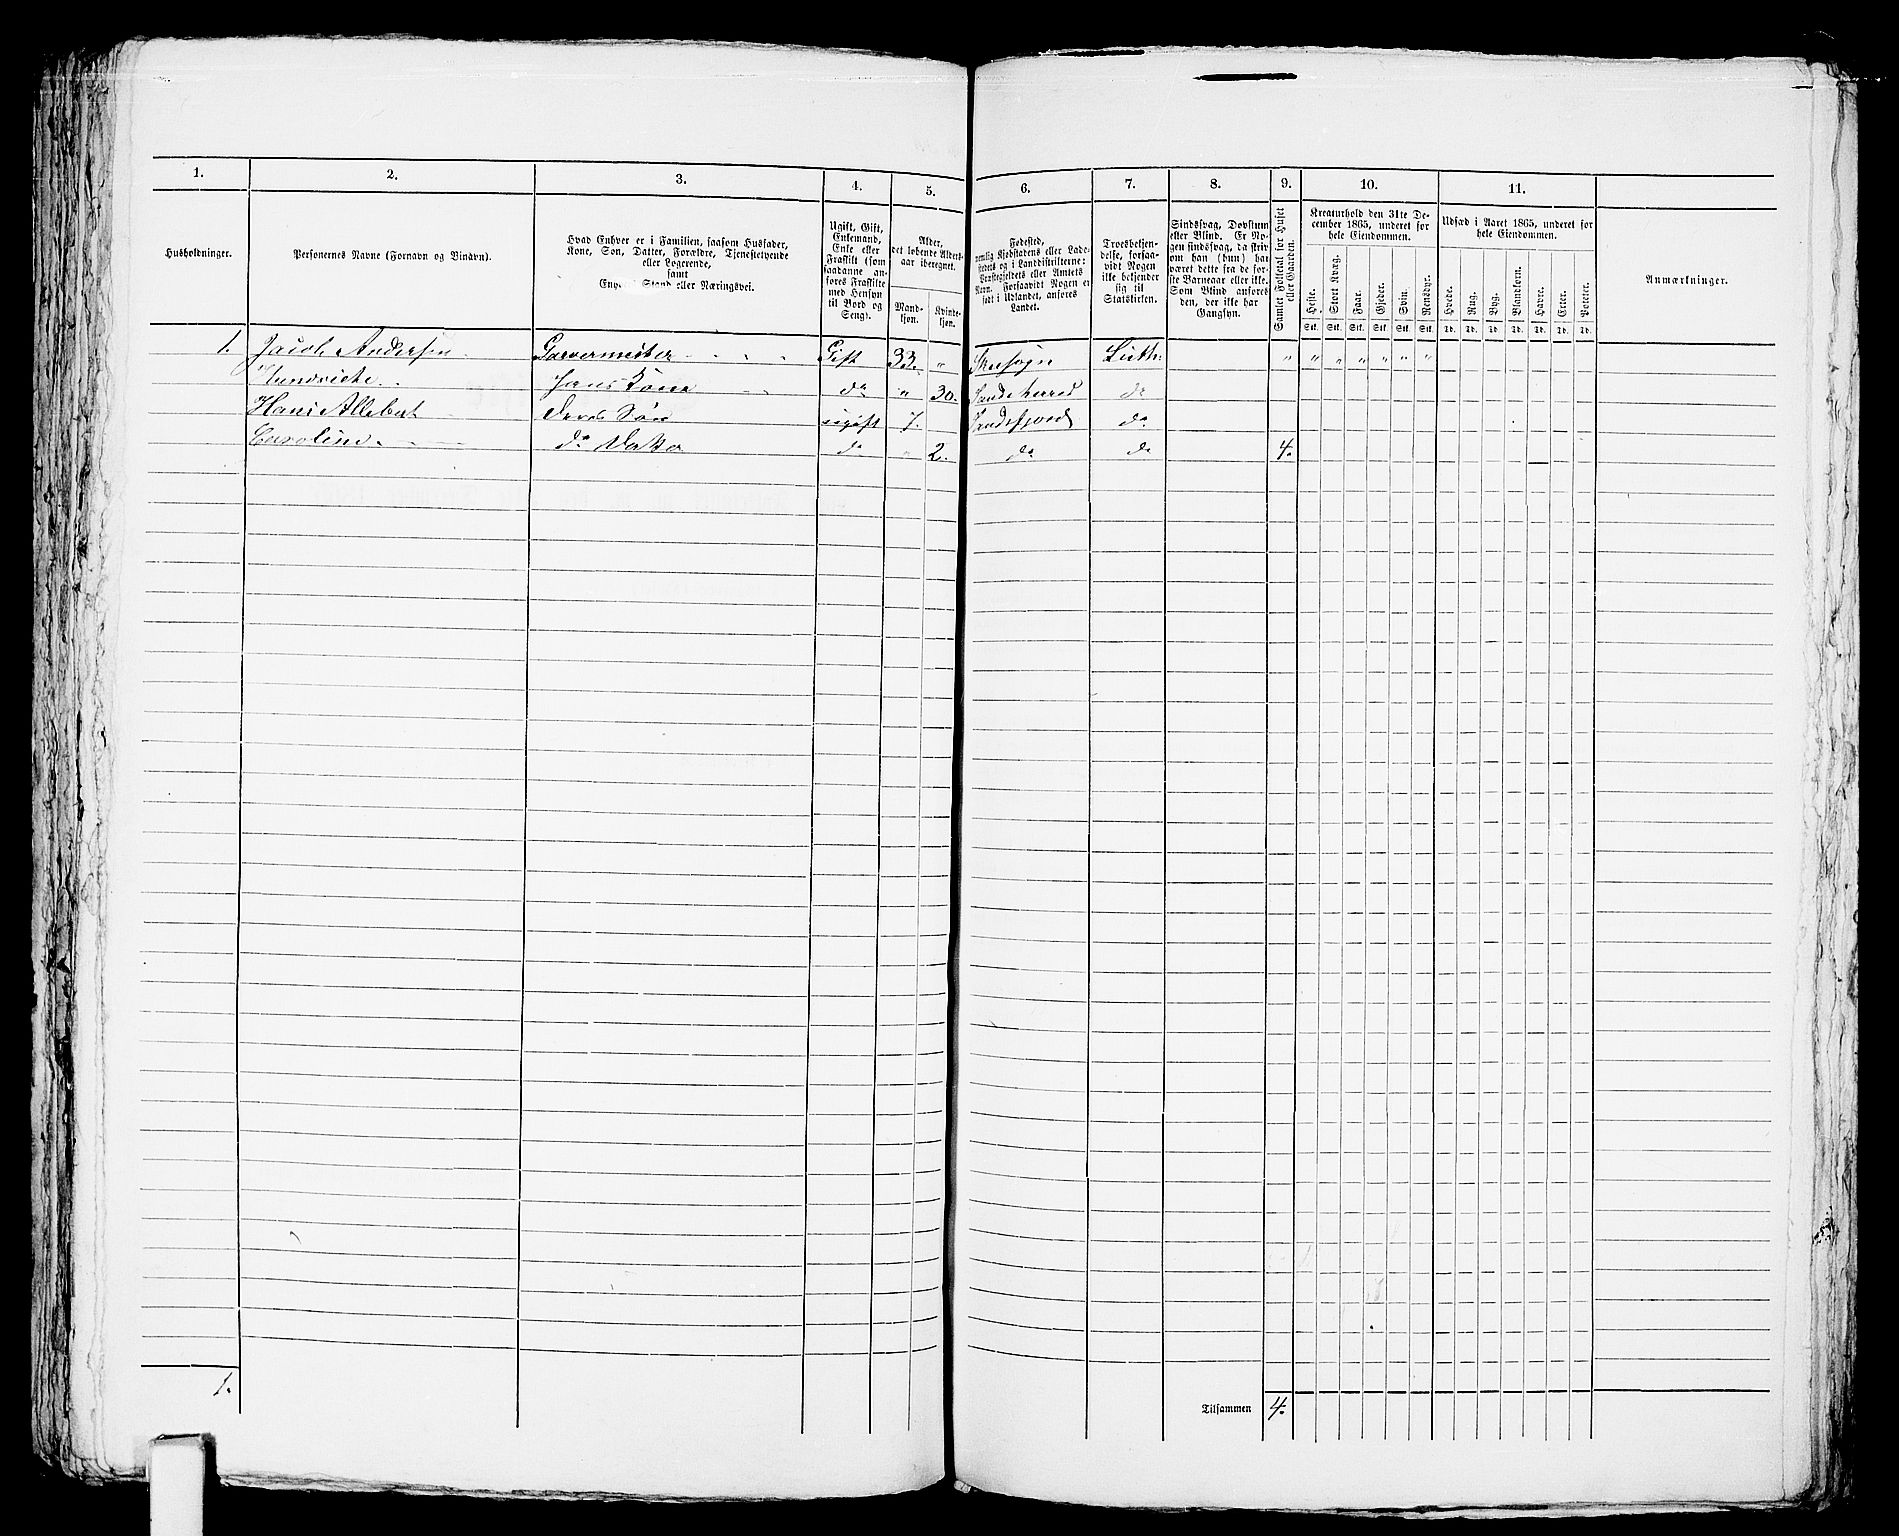 1. 2. 3. 4. 5. 6. 7. 8. 9. 10. 11.
Husholdninger.
Personernes Navne (Fornavn og Binavn).
Hvad Enhver er i Familien, saasom Husfader,
Kone, Søn, Datter, Forældre, Tjenestetyende
eller Logerende,
samt
Stand eller Næringsvei.
Ugift, Gift,
Enkemand,
Enke eller
Fraskilt (som
saadanne an-
føres Fraskilte
med Hensyn
til Bord og
Seng).
Alder,
det løbende Alders-
aar iberegnet.
Mand-
kjøn.
Kvinde-
kjøn.
Fødested,
nemlig Kjøbstadens eller Lade-
stedets og i Landdistrikterne:
Præstegjeldets eller Amtets
Navn. Forsaavidt Nogen er
født i Udlandet, anføres
Landet.
Troesbekjen-
delse, forsaa-
vidt Nogen
ikke bekjender
sig til
Statskirken.
Sindssvag, Døvstum
eller Blind. Er No-
gen sindssvag, da skriv
om han (hun) har
været dette fra de før-
ste Barneaar eller ikke.
Som Blind anføres
den, der ikke har
Gangsyn.
Samlet Folketal for Huset
eller Gaarden.
Kreaturhold den 31te De-
cember 1865, underet for
hele Eiendommen.
Heste. Stort Kvæg. Faar. Gjeder. Svin. Rensdyr.
Stk. Stk. Stk. Stk. Stk. Stk.
Udsæd i Aaret 1865, underet for
hele Eiendommen.
Hvede. Rug. Byg. Blandkorn. Havre. Erter. Poteter.
Td. Td. Td. Td. Td. Td. Td.
Anmærkninger.
1. Jacob Andersen Garvermester Gift 33. " Luth: " " " " " " "
Hans Kone do " 30. Sandeherred do
Hans Allebert Søn ugift 7. Sandefjord do
Caroline do do " 2. do do 4.
1. Tilsammen 4.